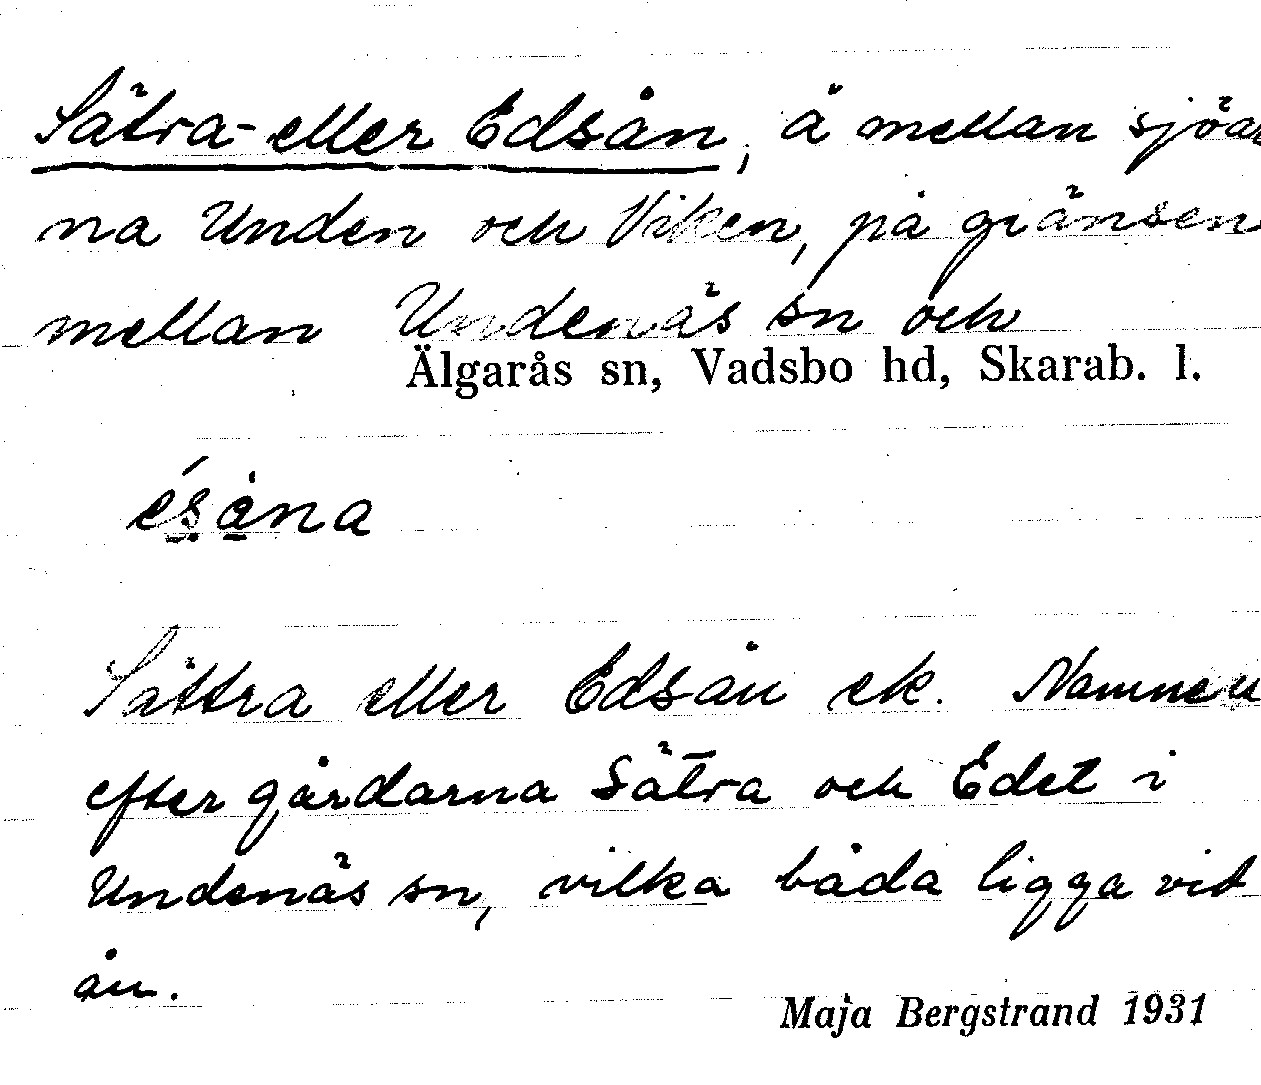 Sätra- eller Edsån, å mellan sjöar
na Unden och Viken, på gränsen
mellan Undenäs sn och
Älgarås sn, Vadsbo hd, Skarab. l.
ésåna
Sättra eller Edsån ek. Namnen
efter gårdarna Sätra och Edet i
Undenäs sn, vilka båda ligga vid
ån.
Maja Bergstrand 1931